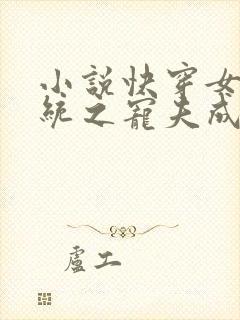 小說快穿女
統之寵夫成
盧工